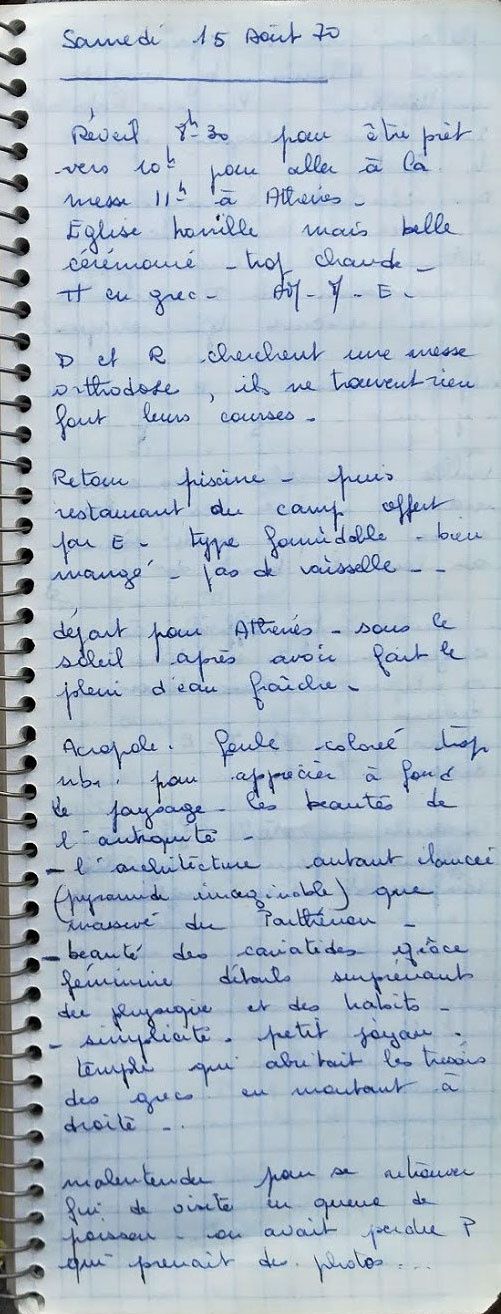 Samedi 15 Août 70
Réveil 8h30 pour être prêt
vers 10h pour aller à la
messe 11h à Athènes -
Église horrible mais belle
cérémonie - trop chaude -
tt en grec - - E -
D et R cherchent une messe
orthodoxe, ils ne trouvent rien
font leurs courses -
Retour piscine - puis
restaurant du camp offert
par E - type formidable - bien
mangé - pas de vaisselle - -
départ pour Athènes - sous le
soleil après avoir fait le
plein d'eau fraîche -
Acropole. foule colorée trop
nbr. pour apprécier à fond
le paysage - les beautés de
l'antiquité -
- l'architecture autant élancée
(pyramide imaginable) que
massive du Parthénon -
- beauté des cariatides grâce
féminine détails surprenants
du physique et des habits -
- simplicité. petit joyau.
temple qui abritait les trésors
des grecs en montant à
droite -.
malentendu pour se retrouver
fin de visite en queue de
poisson - on avait perdu P
qui prenait des photos...